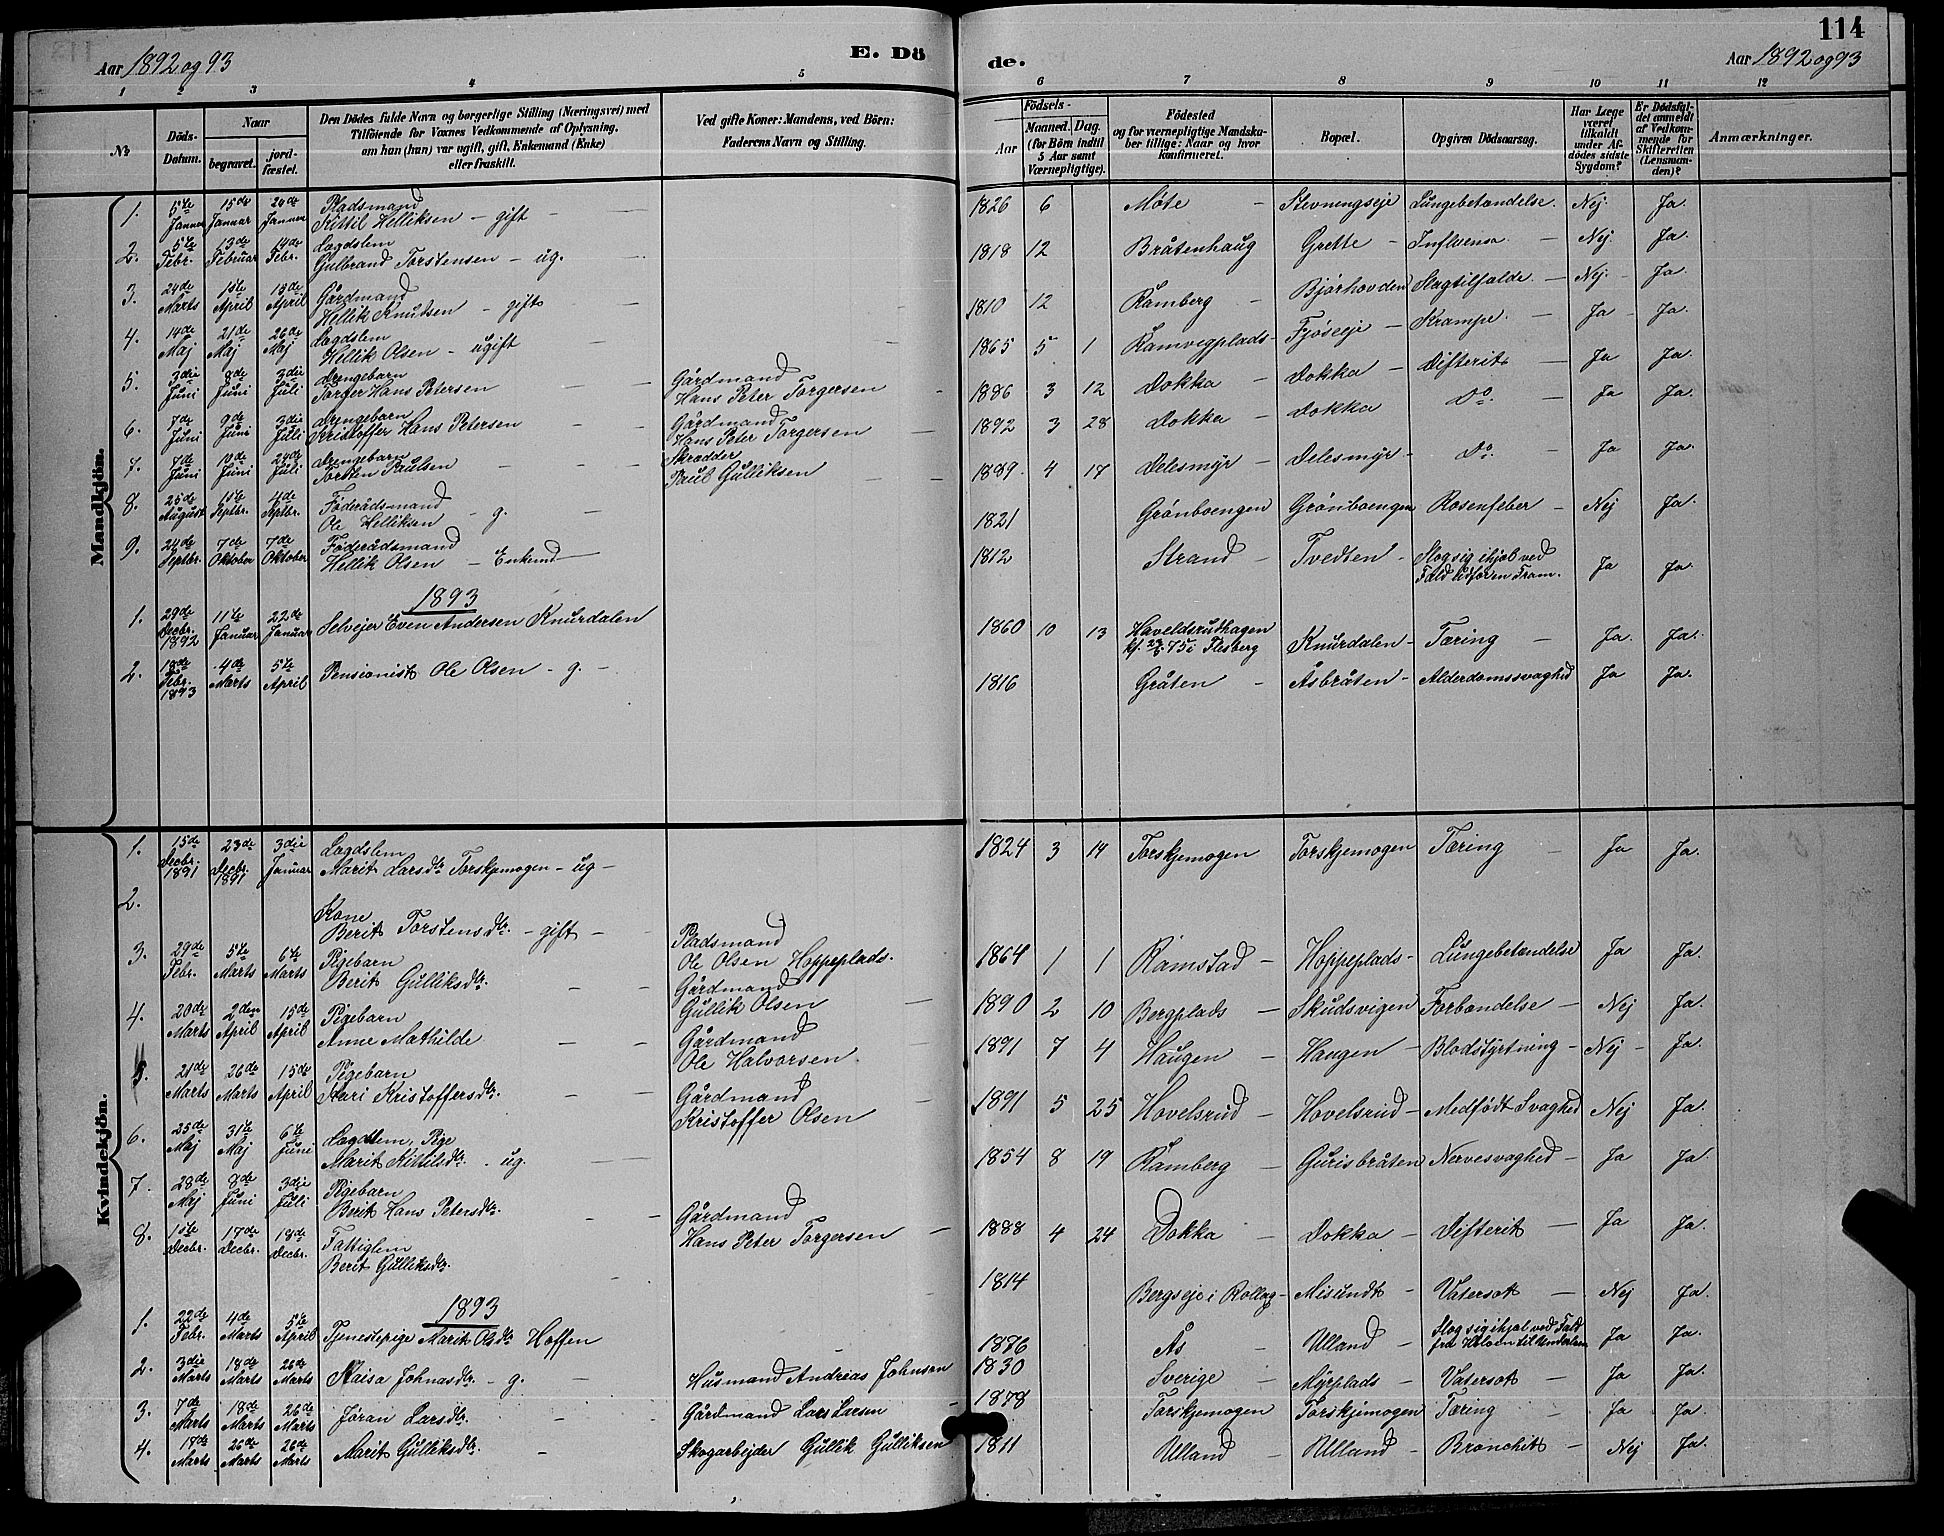 114
Aar 1892 og 93
E. Dö
de.
Aar 1892 og 93
1 2 3 4 5 6 7 8 9 10 11 12
No
Döds-Datum.
Naar
begravet.
jord-fæstet.
Den Dödes fulde Navn og borgerlige Stilling (Næringsvei) med
Tilföiende for Voxnes Vedkommende af Oplysning,
om han (hun) var ugift, gift, Enkemand (Enke)
eller fraskilt.
Ved gifte Koner: Mandens, ved Börn:
Faderens Navn og Stilling.
Födsels-
Aar
Maaned. Dag.
(for Börn indtil
5 Aar samt
Værnepligtige).
Födested
og for værnepligtige Mandska-
ber tillige: Naar og hvor
konfirmeret.
Bopæl.
Opgiven Dödsaarsag.
Har Læge
været
tilkaldt
under Af-
dödes sidste
Sygdom?
Er Dødsfal-
det anmeldt
af Vedkom-
mende for
Skifteretten
(Lensman-
den)?
Anmærkninger.
Mandkjön.
1. 5te Januar 15de Januar 24de Januar Pladsmand Kittil Helliksen - gift - 1826 6 Møte - Stevningseje Lungebetændelse. Nej. Ja.
2. 5te Febr. 13de Februar 14de Febr. Lægdslem Gulbrand Torstensen - ug. - 1818 12 Bråtenhaug Grette - Influensa - Nej. Ja.
3. 24de Marts 1ste April 18de April Gårdmand Hellik Knutsen - gift - 1810 12 Ramberg - Bjørhovden Slagtilfælde. - Nej. - Ja.
4. 14de Maj 21de Maj 26de Maj Lægdslem Hellik Olsen - ugift - 1865 5 1 Ramvigplads - Fjøseje - Krampe. - Ja - Ja.
5. 3die Juni 8de Juni 3die Juli Drengebarn Torger Hans Petersen - Gårdmand Hans Peter Torgersen - 1886 3 12 Dokka - Dokka - Difterit - Ja Ja.
6. 7de Juni 9de Juni 3die Juli Drengebarn Kristoffer Hans Petersen - Gårdmand Hans Peter Torgersen - 1892 3 28 Dokka - Dokka Do. - Ja Ja.
7. 7de Juni 10de Juni 24de Juli Drengebarn Torsten Paulsen - Skrædder Paul Gulliksen - 1889. 4 17 Delesmyr - Delesmyr - Do. - Ja Ja.
8. 25de August 1ste Septbr. 4de Septbr. Føderådsmand Ole Helliksen - g. - 1821 Grønboengen Grønboengen Rosenfeber - Nej Ja.
9. 24de Septbr. 7de Oktober 7de Oktober Føderådsmand Hellik Olsen - Enkemd. - 1812 Strand - Tvedten - Slog sig ihjel ved Fald udfor en Tram. Ja Ja.
1893
1. 29de Decbr. 1892 11te Januar 22de Januar Selvejer Even Andersen Knurdalen 1860 10 13 Haveldsrudhagen kf. 75 i Flesberg Knurdalen - Tæring - Ja. Ja.
2. 18de Febr. 1893 4de Marts 5te April Pensionist Ole Olsen - g. - 1816 Gråten - Åsbråten - Alderdomssvaghed Ja Ja.
Kvindekjön.
1. 15de Decbr. 1891 23de Decbr. 1891 3die Januar Lægdslem Marit Larsdtr. Torskjemogen - ug - 1824 3 14 Torskjemogen Torskjemogen Tæring - Ja Ja.
2. Kone Berit Torstensdtr. - gift - Pladsmand Ole Olsen Hoppeplads. 1864 1 1 Ramstad - Hoppeplads - Lungebetændelse Ja Ja.
3. 29de Febr. 5te Marts 6te Marts Pigebarn Berit Gulliksdtr. - Gårdmand Gullik Olsen - 1890 2 10 Bergplads - Skudsvigen Forbændelse - Nej Ja.
4. 20de Marts 2den April 15de April Pigebarn Anne Mathilde - Gårdmand Ole Halvorsen. 1891 7 4 Haugen - Haugen - Blodstyrtning - Nej - Ja.
5. 21de Marts 26de Marts 15de April Pigebarn Kari Kristoffersdtr. - Gårdmand Kristoffer Olsen 1891 5 25 Hovelsrud - Hovelsrud - Medfødt Svaghed Nej Ja.
6. 25de Maj 31te Maj 6te Juni Lægdslem, Pige Marit Kittilsdtr. - ug. - 1854 8 19 Ramberg - Gurisbråten Nervesvaghed - Ja Ja.
7. 28de Maj 8de Juni 3die Juli Pigebarn Berit Hans Petersdtr. - Gårdmand Hans Peter Torgersen - 1888 4 24 Dokka - Dokka - Difterit - Ja Ja.
8. 1ste Decbr. 17de Decbr. 18de Decbr. Fattiglem Berit Gulliksdtr. - 1814 Bergseje i Rollag - Misundt - Vatersot - Nej Ja.
1893
1. 22de Febr. 4de Marts 5te April Tjenestepige Marit Olsdtr. Hoffen - 1876 Ås - Ulland - Slog sig ihjel ved Fald fra til Ja Ja.
2. 3die Marts 18de Marts 26de Marts Kaisa Johnasdtr. - g. - Husmand Andreas Johnsen 1830 Sverige - Myrplads - Vatersot - Ja Ja.
3. 7de Marts 18de Marts 26de Marts Jøran Larsdtr. - Gårdmand Lars Larsen - 1878 Torskjemogen Torskjemogen Tæring - Ja Ja.
4. 17de Marts 26de Marts 26de Marts Marit Gulliksdtr. - Skogarbejder Gullik Gulliksen 1811 Ulland - Ulland - Bronchit - Nej Ja.